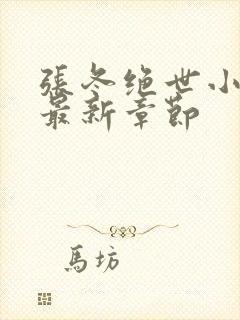 張冬绝世小
最新章節
馬坊